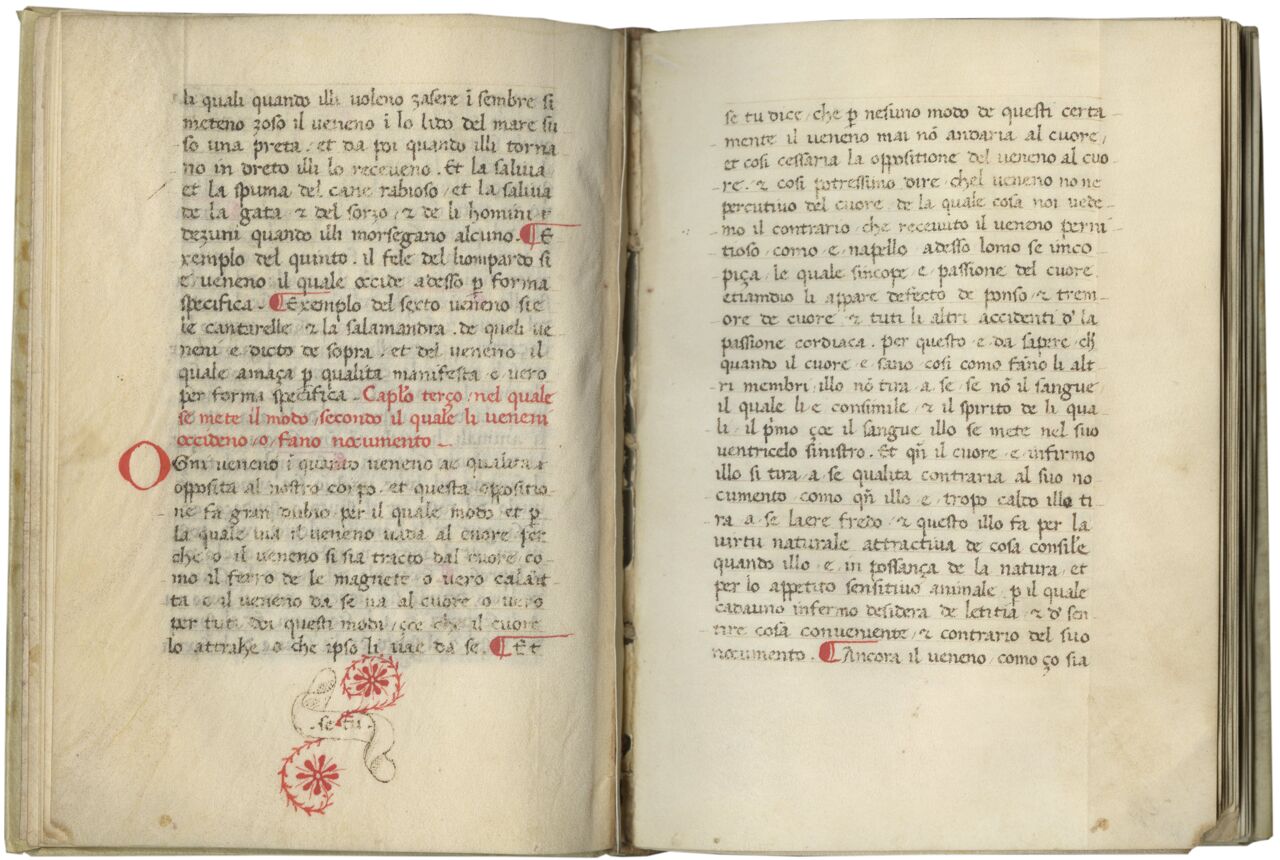 li quali quando illi voleno zasere ĩ sembre si
meteno zoso il veneno ĩ lo lido del mare su
so una preta . et da poi quando illi torna
no in dreto illi lo receveno . Et la saliva
et la spuma del cane rabioso / et la saliva
de la gata / ⁊ del sorzo / ⁊ de li homini
dezuni quando illi morsegano alcuno . ¶ E
xemplo del quinto . il fele del liompardo si
e veneno il quale occide adesso ꝑ forma
specifica . ¶ Exemplo del sexto veneno sie
le cantarelle / ⁊ la salamandra . de queli ve
neni e dicto de sopra . et del veneno il
quale amaça ꝑ qualita manifesta e vero
per forma specifica . Caplo terço / nel quale
se mete il modo / secondo il quale li veneni
occideno / o / fano nocumento
Ogni veneno ĩ quanto veneno ae qualita
opposita al nostro corpo . et questa oppositio
ne fa gran dubio per il quale modo et ꝑ
la quale via il veneno vada al cuore per
che o il veneno si sia tracto dal cuore co
mo il ferro de le magnete o vero
ta e il veneno da se va al cuore o vero
per tuti doi questi modi / çoe che il cuore
lo attrahe o che ipso li vae da se . ¶ Et
. se tu .
se tu dice / che ꝑ nesuno modo de questi certa
mente il veneno mai nõ andaria al cuore /
et cosi cessaria la oppositione del veneno al cuo
re . ⁊ cosi potressimo dire / chel veneno no ne
percutivo del cuore . de la quale cosa noi vede
mo il contrario / che recevuto il veneno perni
tioso / como e / napello / adesso lomo se inco
piça / le quale sincope / e / passione del cuore .
etiamdio li appare defecto de ponso / ⁊ trem
ore de cuore / ⁊ tuti li altri accidenti d' la
passione cordiaca . per questo / e da sapere / ch
quando il cuore / e / sano / cosi como fano li alt
ri membri / illo nõ tira / a se / se nõ il sangue
il quale li e consimile / ⁊ il spirito de li qua
li . il pmo çoe il sangue illo se mete nel suo
ventricelo sinistro . Et qñ il cuore / e / infirmo
illo si tira / a se qualita contraria al suo no
cumento / como qñ illo / e / tropo caldo illo ti
ra / a se laere fredo / ⁊ questo illo fa per la
virtu naturale attractiva de cosa consile
quando illo / e / in possança de la natura / et
per lo appetito sensitivo animale / ꝑ il quale
cadauno infermo desidera de letitia / ⁊ d' sen
tire cosa conveniente / ⁊ contrario del suo
nocumento . ¶ Ancora il veneno / como ço sia